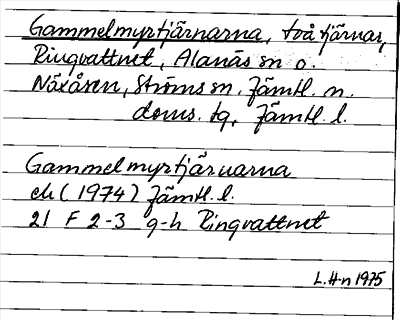 Gammelmyrtjärnarna, två tjärnar,
Ringvattnet, Alanäs sn o.
Näxåsen, Ströms sn. Jämtl. n.
doms. tg, Jämtl. l.
Gammelmyrtjärnarna
ek (1974) Jämtl. l.
21 F 2-3 g-h Ringvattnet
L. H-n 1975